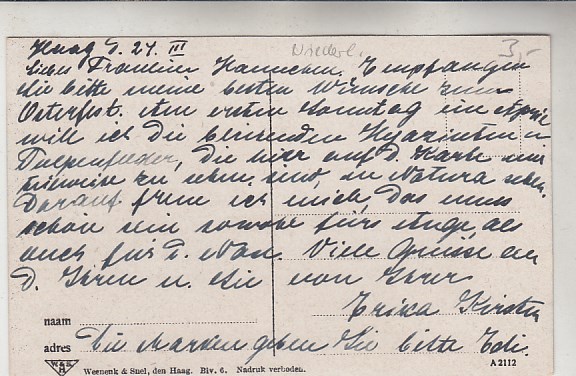 Niederl. 3,-
Haag d. 24. III
Liebes Fräulein Hannchen. Empfangen
Sie bitte meine besten Wünsche zum
Osterfest. Am ersten Sonntag im April
will ich die blühenden Hyazinten u
Tulpenfelder, die hier auf d. Karte nur
teilweise zu sehen sind, in Natura sehen.
Darauf freue ich mich, das muss
schön sein sowohl fürs Auge als
auch für d. Nase. Viele Grüsse an
d. Ihren u. Sie von Ihrer
Erika Kirsten
naam
adres Die Marken geben Sie bitte Edi.
W & S H
Weenenk & Snel, den Haag. Biv. 6. Nadruk verboden.
A 2112